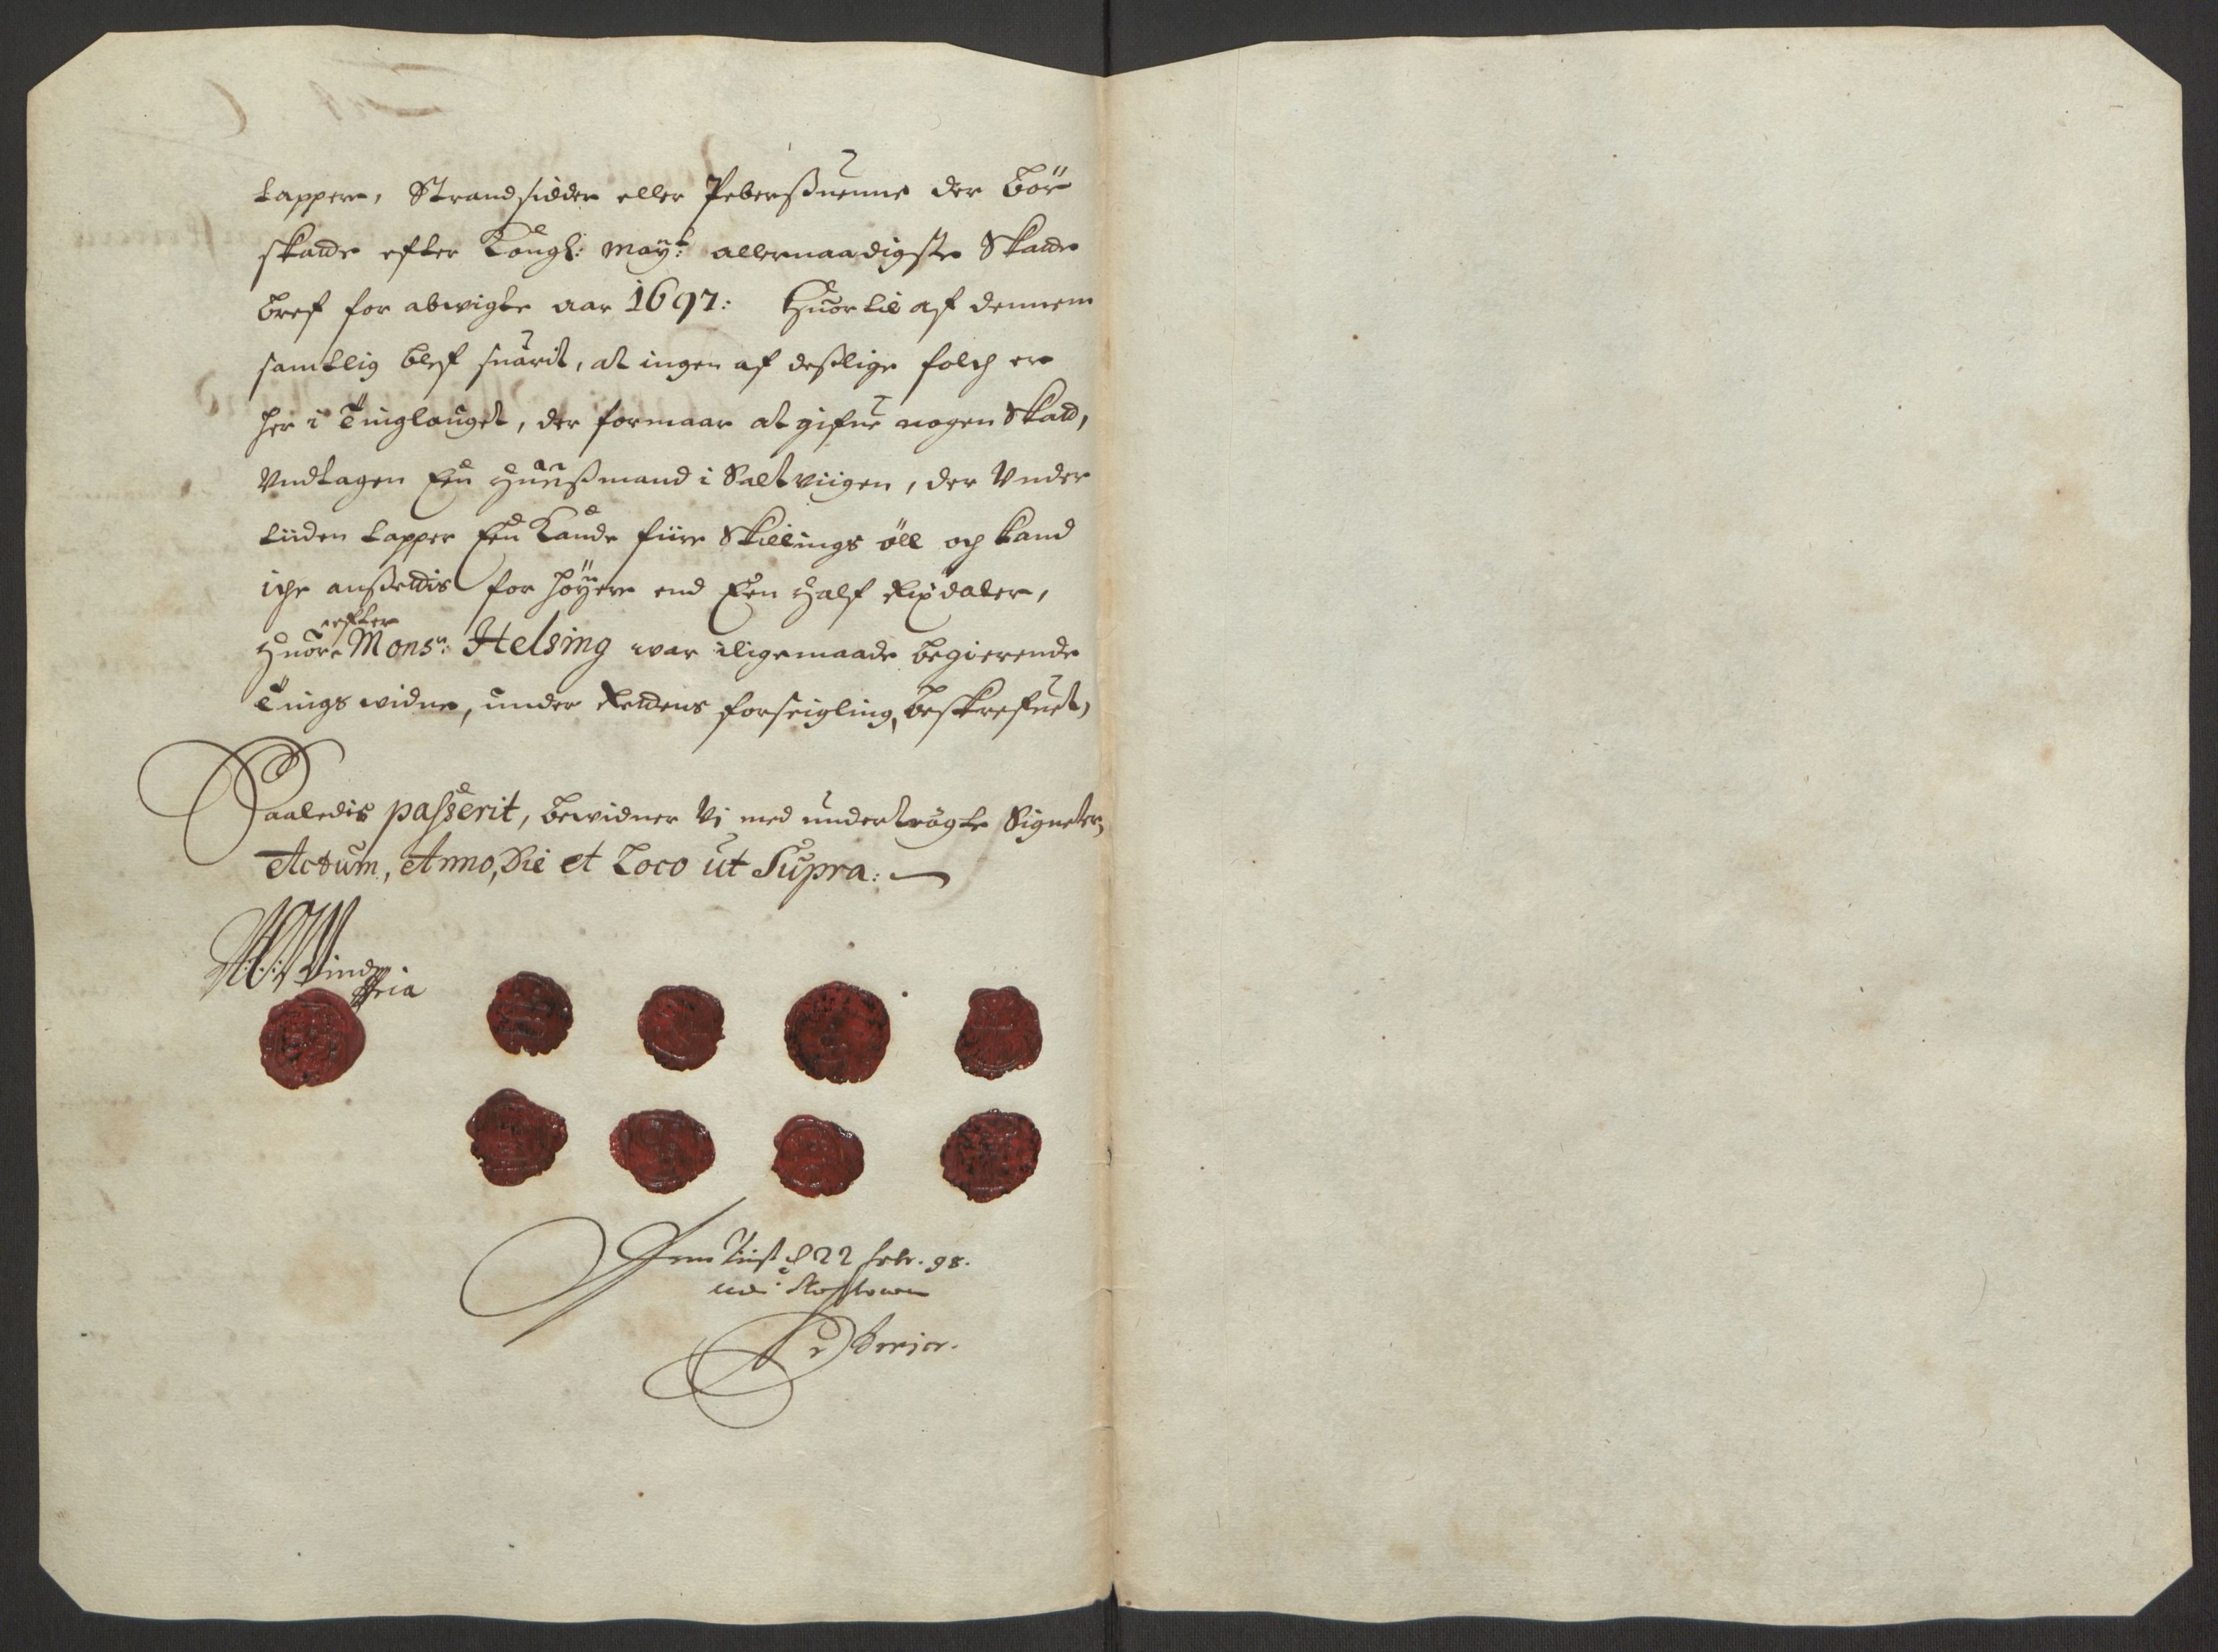 tappere, Strandsidder eller Peberssuenne der bør
skatte efter Kongl: May:t allernaadigste Skatte
bref for abvigte aar 1697: Huortil af dennem
samtlig blef suarit, at ingen af desslige folch er
her i Tinglauget, der formaar at gifue nogen Skatt,
Undtagen Een Huussmand i Saltviigen, der Under
tiiden tapper Een Kande fiire Skillings øll och kand
iche ansettis for høyere end Een Half Rixdaler,
Huorefter Mons:r Helsing war iligemaade begierende
Tings widne, under Rettens forseigling, beskrefuet,
Saaledis passerit, bewidner Vi med undertrøgte Signeter,
Actum, Anno, Die et Loco ut Supra:
Wind
22 febr. 98.